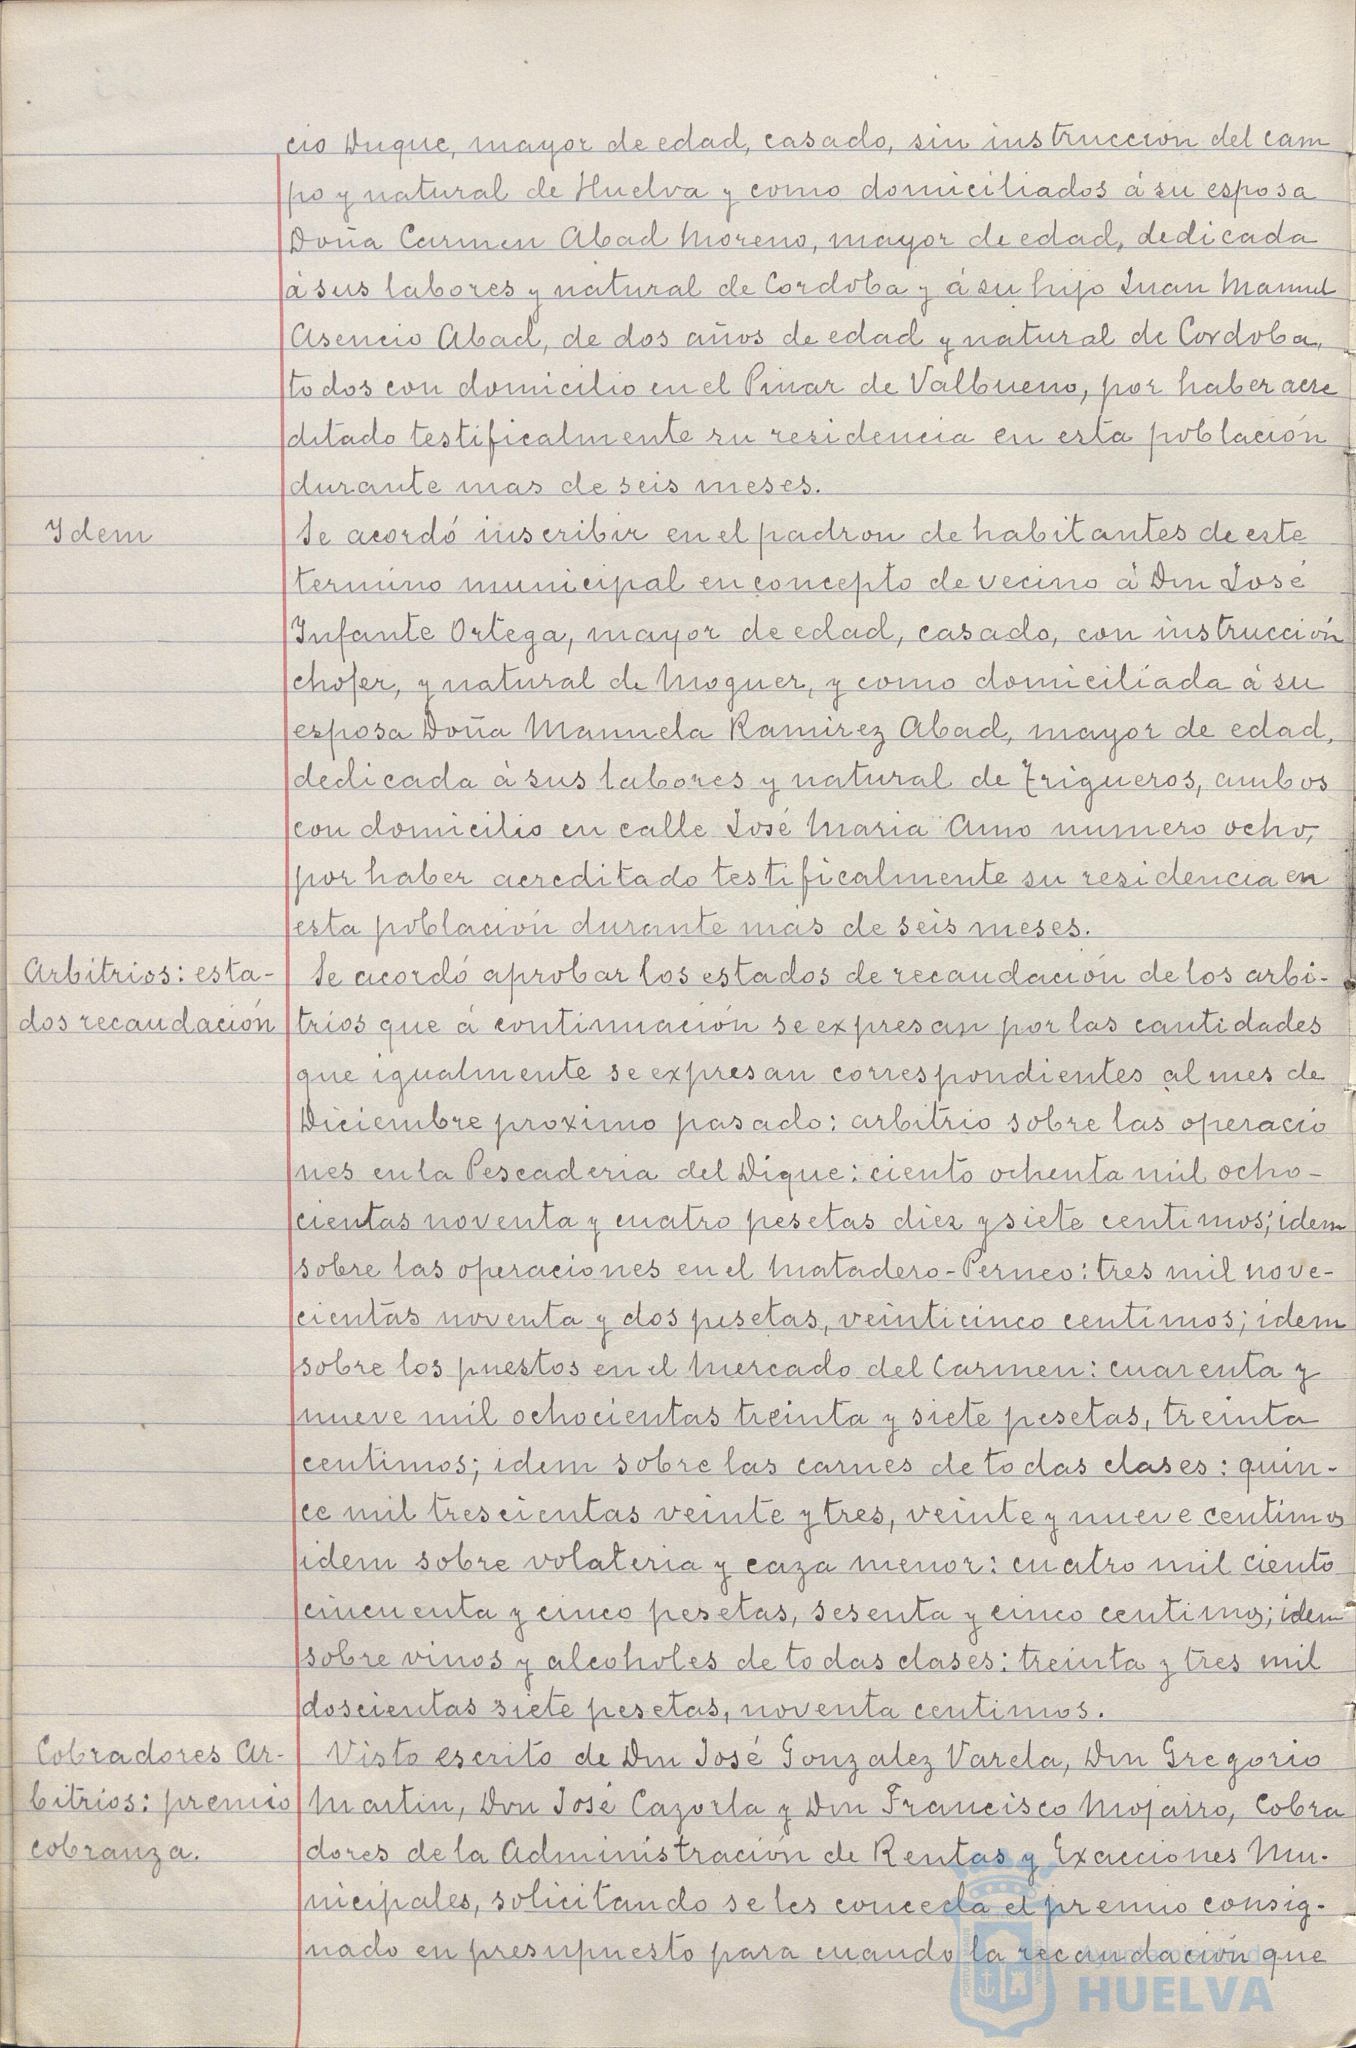 cio Duque, mayor de edad, casado, sin instruccion del cam
po y natural de Huelva y como domiciliados á su esposa
Doña Carmen Abad Moreno, mayor de edad, dedicada
á sus labores y natural de Cordoba y á su hijo Juan Manuel
Asencio Abad, de dos años de edad y natural de Cordoba,
todos con domicilio en el Pinar de Valbueno, por haber acre
ditado testificalmente su residencia en esta población
durante mas de seis meses.
Idem
Se acordó inscribir en el padron de habitantes de este
termino municipal en concepto de vecino á Don José
Infante Ortega, mayor de edad, casado, con instrucción
chofer, y natural de Moguer, y como domiciliada á su
esposa Doña Manuela Ramirez Abad, mayor de edad,
dedicada á sus labores y natural de Trigueros, ambos
con domicilio en calle José Maria Amo numero ocho,
por haber acreditado testificalmente su residencia en
esta población durante más de seis meses.
Arbitrios: esta-
dos recaudación
Se acordó aprobar los estados de recaudación de los arbi-
trios que á continuación se expresan por las cantidades
que igualmente se expresan correspondientes al mes de
Diciembre proximo pasado: arbitrio sobre las operacio
nes en la Pescaderia del Dique: ciento ochenta mil ocho-
cientas noventa y cuatro pesetas diez y siete centimos; idem
sobre las operaciones en el Matadero-Perneo: tres mil nove-
cientas noventa y dos pesetas, veinticinco centimos; idem
sobre los puestos en el Mercado del Carmen: cuarenta y
nueve mil ochocientas treinta y siete pesetas, treinta
centimos; idem sobre las carnes de todas clases: quin-
ce mil trescientas veinte y tres, veinte y nueve centimos
idem sobre volateria y caza menor: cuatro mil ciento
cincuenta y cinco pesetas, sesenta y cinco centimos; idem
sobre vinos y alcoholes de todas clases: treinta y tres mil
doscientas siete pesetas, noventa centimos.
Cobradores Ar-
bitrios: premio
cobranza.
Visto escrito de Don José Gonzalez Varela, Don Gregorio
Martin, Don José Cazorla y Don Francisco Mojarro, Cobra
dores de la Administración de Rentas y Exacciones Mu-
nicipales, solicitando se les conceda el premio consig-
nado en presupuesto para cuando la recaudación que
HUELVA